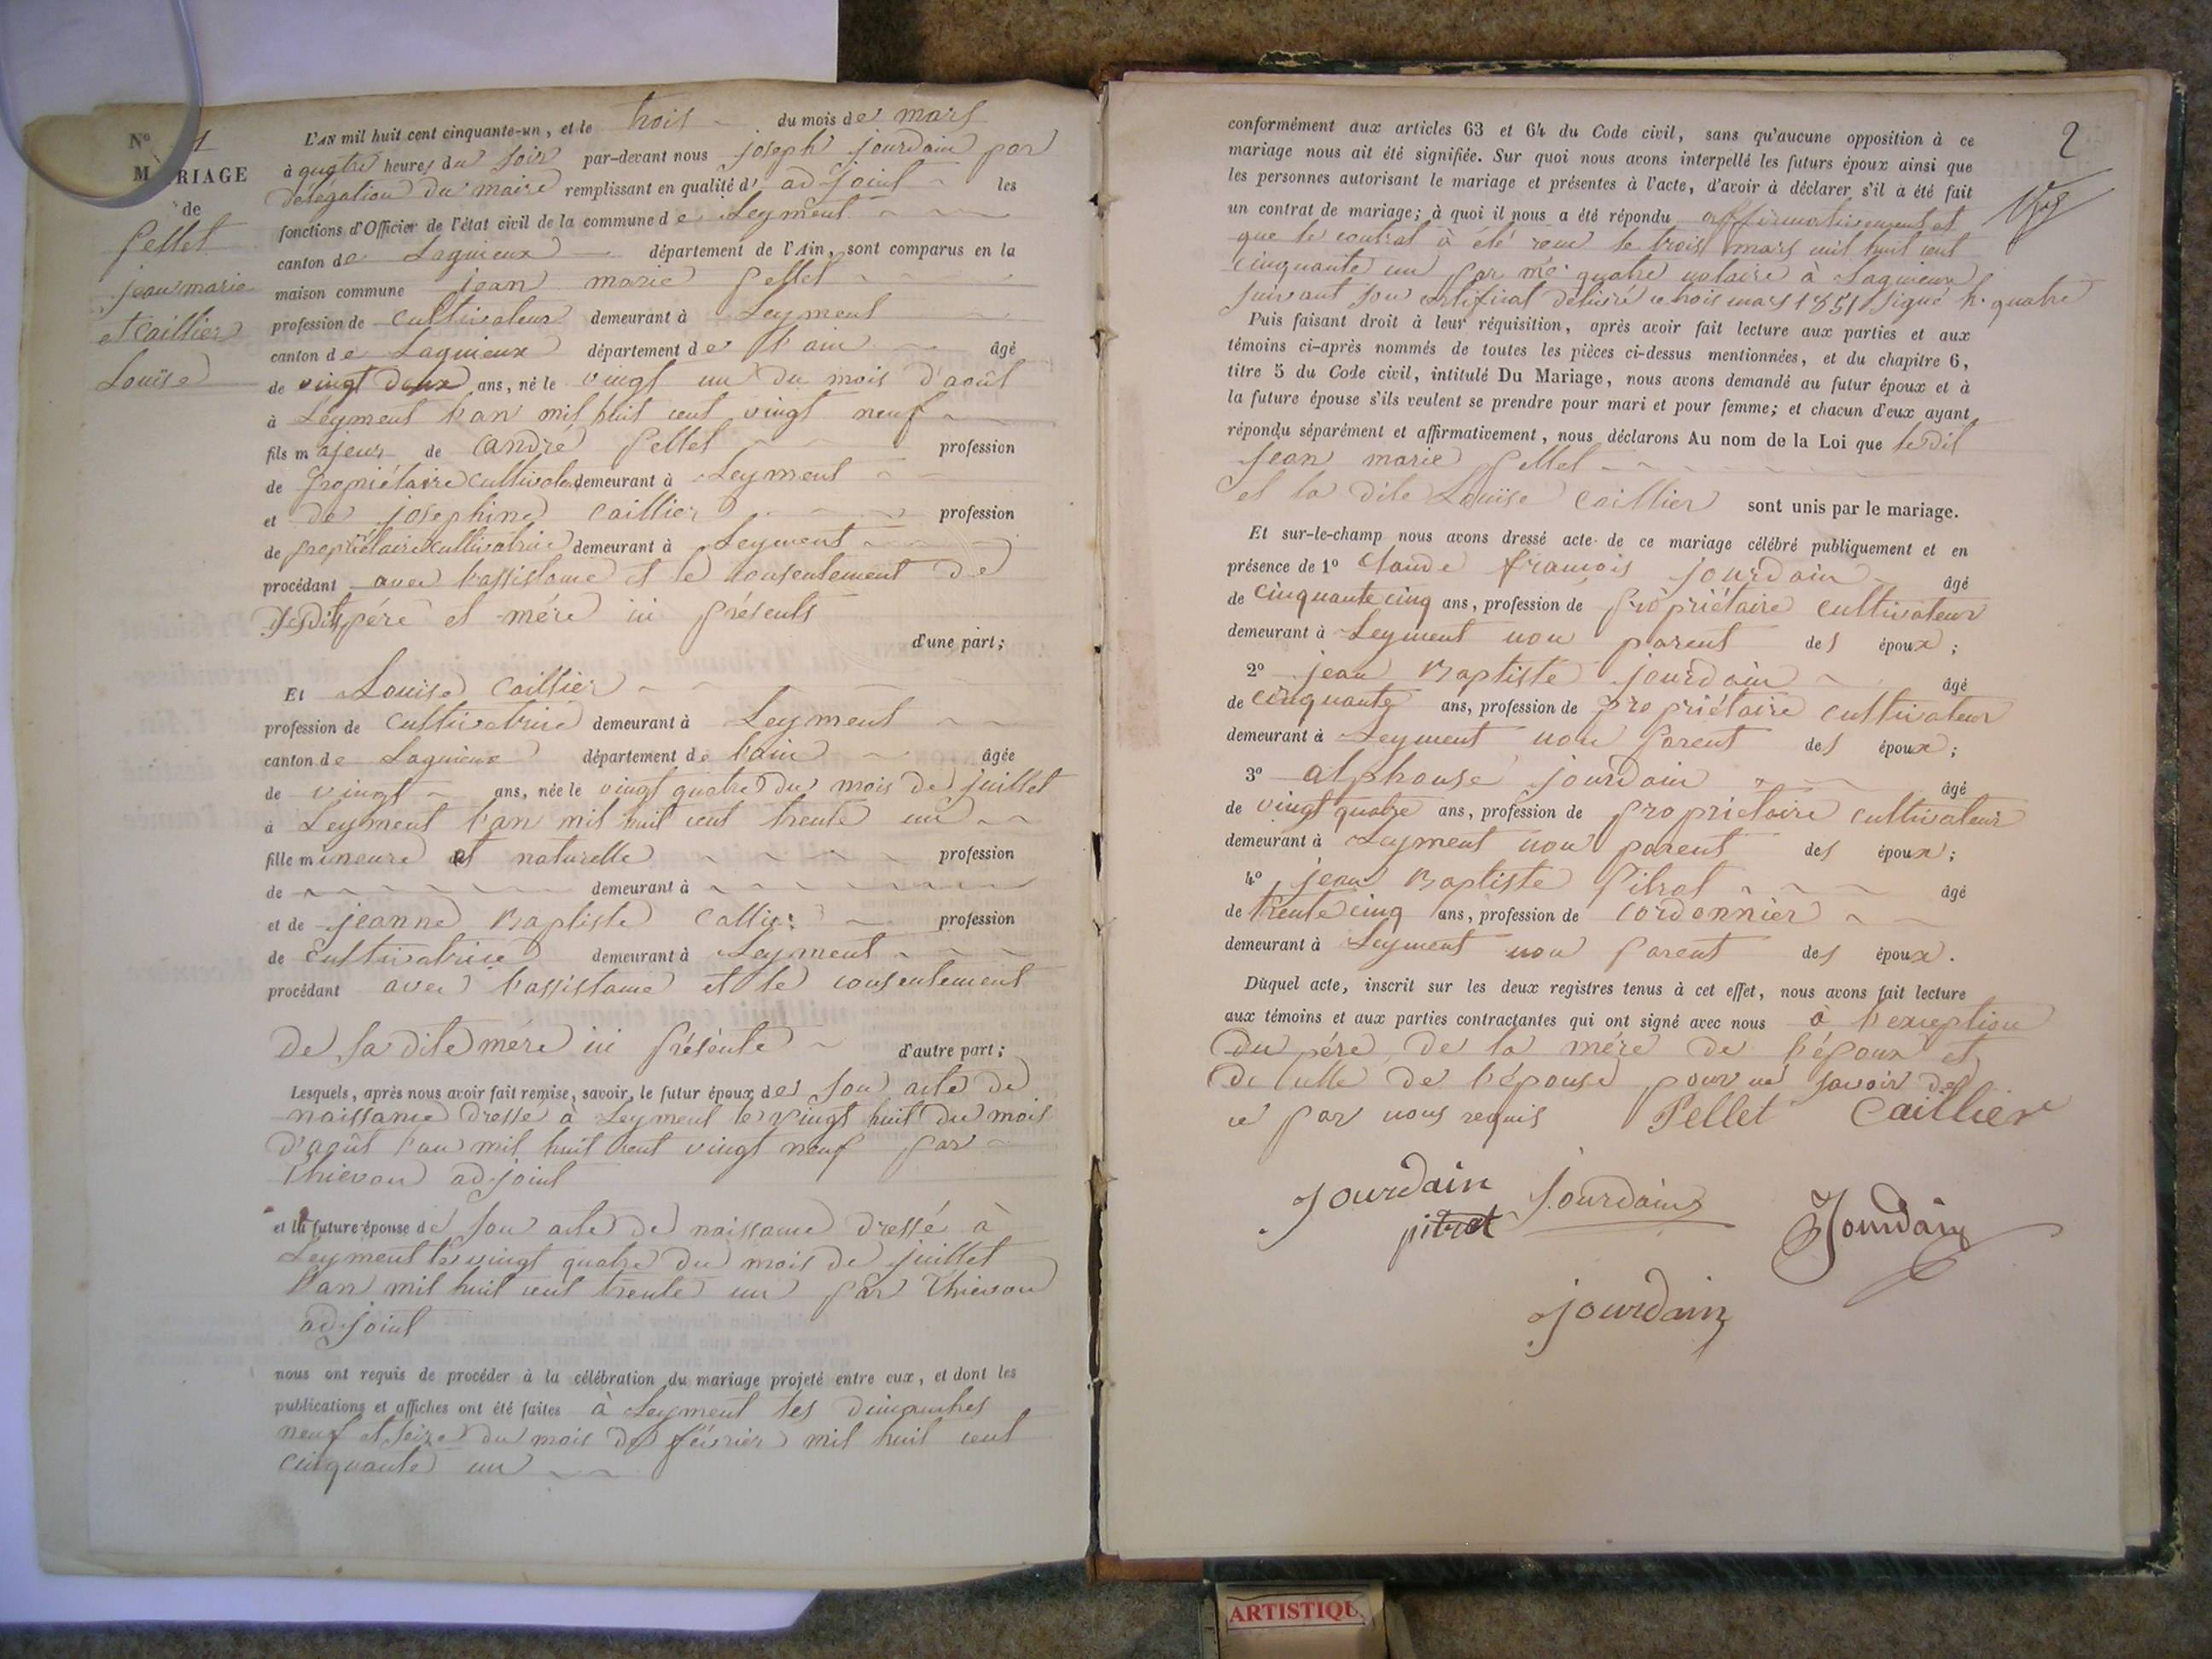 N° 1
MARIAGE
de
Pellet
jean marie
et caillier
Louise
L'AN mil huit cent cinquante-un, et le trois du mois de mars
à quatre heures du soir par-devant nous joseph jourdain par
délégation du maire remplissant en qualité d' adjoint les
fonctions d'Officier de l'état civil de la commune de Leyment
canton de Lagnieux département de l'Ain, sont comparus en la
maison commune jean marie Pellet
profession de cultivateur demeurant à Leyment
canton de Lagnieux département de l'ain âgé
de vingt deux ans, né le vingt un du mois d'août
à Leyment l'an mil huit cent vingt neuf
fils majeur de andré Pellet profession
de propriétaire cultivateur demeurant à Leyment
et de josephine Caillier profession
de propriétaire cultivatrice demeurant à Leyment
procédant avec l'assistance et le consentement de
sesdits père et mère ici présents
d'une part;
Et Louise Caillier
profession de cultivatrice demeurant à Leyment
canton de Lagnieux département de l'ain âgée
de vingt ans, née le vingt quatre du mois de juillet
à Leyment l'an mil huit cent trente un
fille mineure et naturelle profession
de demeurant à
et de jeanne Baptiste profession
de cultivatrice demeurant à Leyment
procédant avec l'assistance et le consentement
De sa dite mère ici présente d'autre part;
Lesquels, après nous avoir fait remise, savoir, le futur époux de son acte de
naissance dressé à Leyment le vingt huit du mois
d'août l'an mil huit cent vingt neuf par
Thievon adjoint
et la future épouse de son acte de naissance dressé à
Leyment le vingt quatre du mois de juillet
l'an mil huit cent trente un par Thievon
adjoint
nous ont requis de procéder à la célébration du mariage projeté entre eux, et dont les
publications et affiches ont été faites à Leyment les dimanches
neuf et seize du mois de février mil huit cent
cinquante un
2
conformément aux articles 63 et 64 du Code civil, sans qu'aucune opposition à ce
mariage nous ait été signifiée. Sur quoi nous avons interpellé les futurs époux ainsi que
les personnes autorisant le mariage et présentes à l'acte, d'avoir à déclarer s'il a été fait
un contrat de mariage; à quoi il nous a été répondu affirmativement et
que le contrat à été reçu le trois mars mil huit cent
cinquante un par me quatre notaire à Lagnieux
suivant son certificat délivré ce trois mars 1851 signé h. quatre
Puis faisant droit à leur réquisition, après avoir fait lecture aux parties et aux
témoins ci-après nommés de toutes les pièces ci-dessus mentionnées, et du chapitre 6,
titre 5 du Code civil, intitulé Du Mariage, nous avons demandé au futur époux et à
la future épouse s'ils veulent se prendre pour mari et pour femme; et chacun d'eux ayant
répondu séparément et affirmativement, nous déclarons Au nom de la Loi que le dit
Jean marie Pellet
et la dite Louise Caillier sont unis par le mariage.
Et sur-le-champ nous avons dressé acte de ce mariage célébré publiquement et en
présence de 1° Claude françois jourdain âgé
de cinquante cinq ans, profession de propriétaire cultivateur
demeurant à Leyment non parent des époux;
2° jean Baptiste jourdain âgé
de cinquante ans, profession de propriétaire cultivateur
demeurant à Leyment non parent des époux;
3° alphonse jourdain âgé
de vingt quatre ans, profession de propriétaire cultivateur
demeurant à Leyment non parent des époux;
4° jean Baptiste Pitrat âgé
de trente cinq ans, profession de cordonnier
demeurant à Leyment non parent des époux.
Duquel acte, inscrit sur les deux registres tenus à cet effet, nous avons fait lecture
aux témoins et aux parties contractantes qui ont signé avec nous à l'exception
du père, de la mère de l'époux et
de celle de l'épouse pour ne savoir de
ce par nous requis Pellet Caillier
Jourdain J. Jourdain
pitrat Jourdain
jourdain
ARTISTIQU